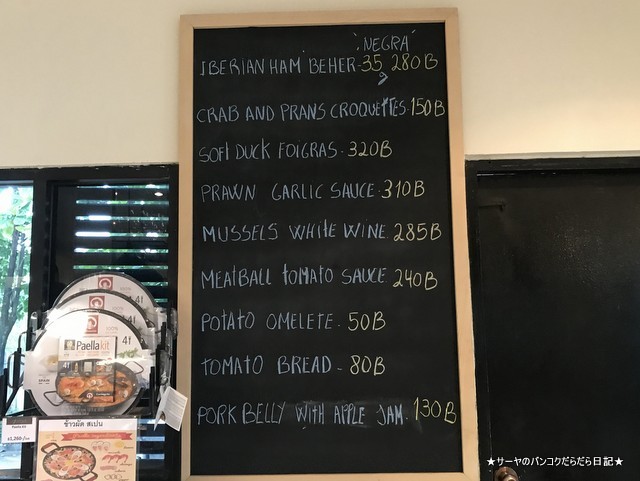 'NEGRA'
IBERIAN HAM BEHER-35 280B
CRAB AND PRANS CROQUETTES 150B
SOFT DUCK FOIGRAS- 320B
PRAWN GARLIC SAUCE- 310B
MUSSELS WHITE WINE 285B
MEATBALL TOMATO SAUCE 240B
POTATO OMELETE- 50B
TOMATO BREAD- 80B
PORK BELLY WITH APPLE JAM. 130B
4f
4f
Paellakit
4f
ข้าวผัด สเปน
★サーヤのバンコクだらだら日記★